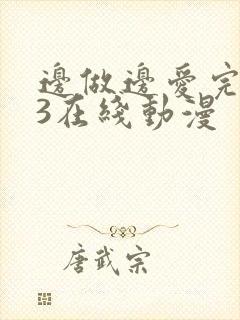 邊做邊愛完
3在綫動漫
唐武宗